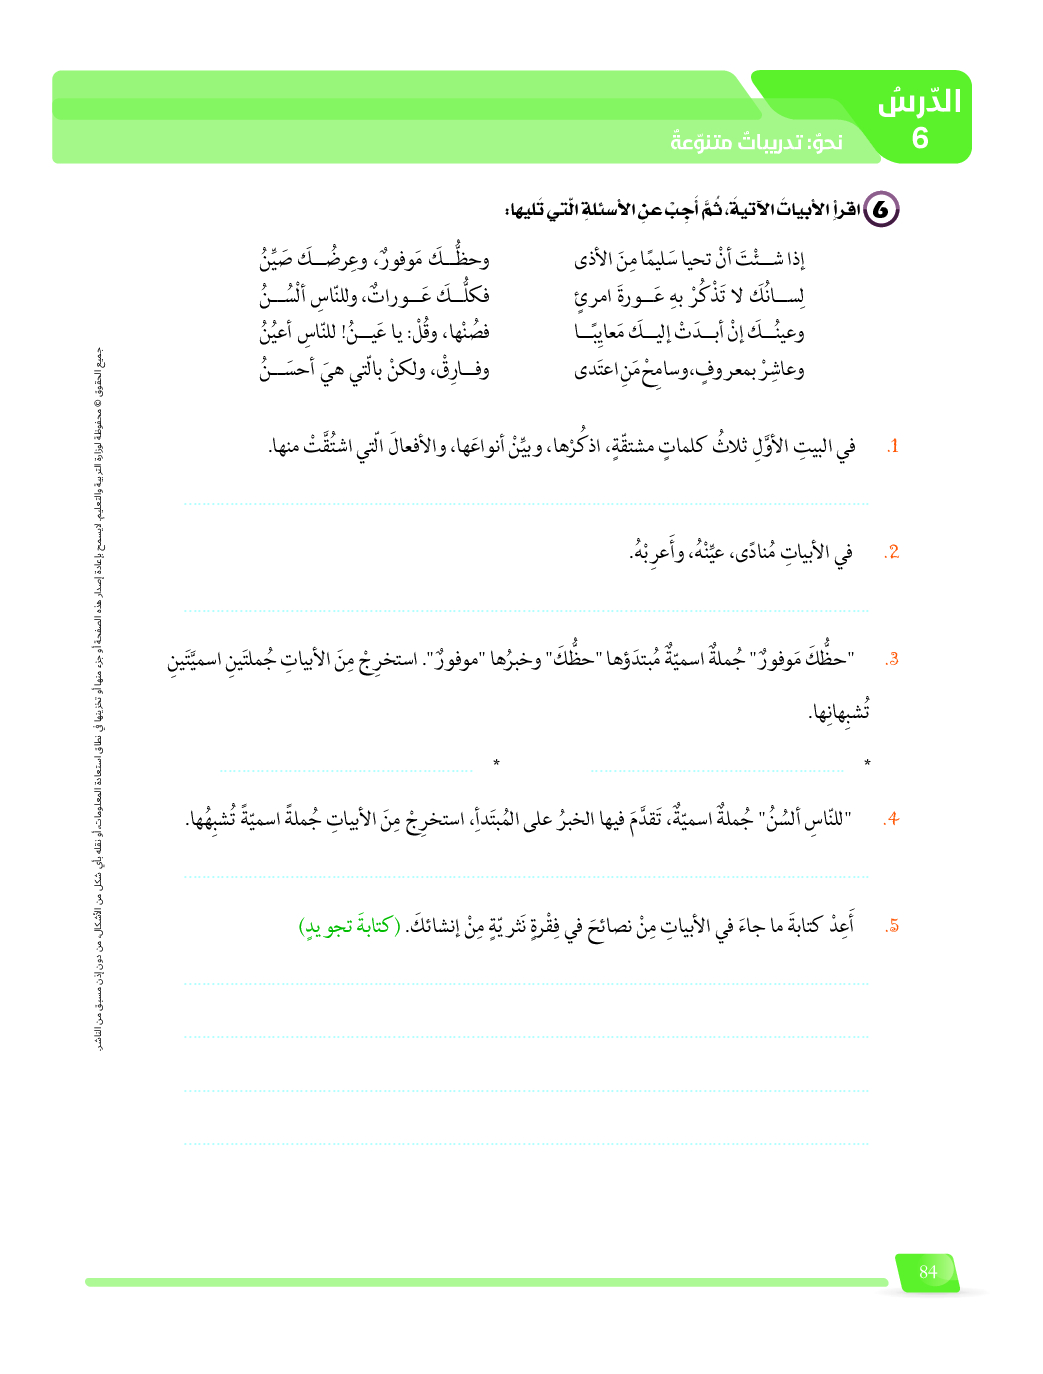 الدّرسُ
6
نحوٌ: تدريباتٌ متنوّعةٌ
6 اقرأِ الأبياتَ الآتيةَ، ثُمَّ أَجِبْ عنِ الأسئلةِ الّتي تَليها:
إذا شـــئْتَ أنْ تحيا سَليمًا مِنَ الأذى وحظُّـــكَ مَوفورٌ، وعِرضُـــكَ صَيِّنُ
لِســـانُكَ لا تَذْكُرْ بهِ عَـــورةَ امرئٍ فكلُّـــكَ عَـــوراتٌ، وللنّاسِ ألْسُـــنُ
وعينُـــكَ إنْ أبـــدَتْ إليـــكَ مَعايِبًـــا فصُنْها، وقُلْ: يا عَيـــنُ! للنّاسِ أعيُنُ
وعاشِرْ بمعروفٍ،وسامِحْ مَنِ اعتَدى وفـــارِقْ، ولكنْ بالّتي هيَ أحسَـــنُ
1. في البيتِ الأوَّلِ ثلاثُ كلماتٍ مشتقّةٍ، اذكُرْها، وبيِّنْ أنواعَها، والأفعالَ الّتي اشتُقَّتْ منها.
2. في الأبياتِ مُنادًى، عيِّنْهُ، وأَعرِبْهُ.
3. "حظُّكَ مَوفورٌ" جُملةٌ اسميّةٌ مُبتدَؤها "حظُّكَ" وخبرُها "موفورٌ". استخرِجْ مِنَ الأبياتِ جُملتَينِ اسميَّتَينِ
تُشبِهانِها.
* *
4. "للنّاسِ ألسُنُ" جُملةٌ اسميّةٌ، تَقدَّمَ فيها الخبرُ على المُبتَدأِ، استخرِجْ مِنَ الأبياتِ جُملةً اسميّةً تُشبِهُها.
5. أَعِدْ كتابةَ ما جاءَ في الأبياتِ مِنْ نصائحَ في فِقْرةٍ نَثريّةٍ مِنْ إنشائكَ. (كتابةَ تجويدٍ)
جميع الحقوق © محفوظة لوزارة التربية والتعليم. لايسمح بإعادة إصدار هذه الصفحة أو جزء منها أو تخزينها في نطاق استعادة المعلومات، أو نقله بأي شكل من الأشكال، من دون إذن مسبق من الناشر.
84